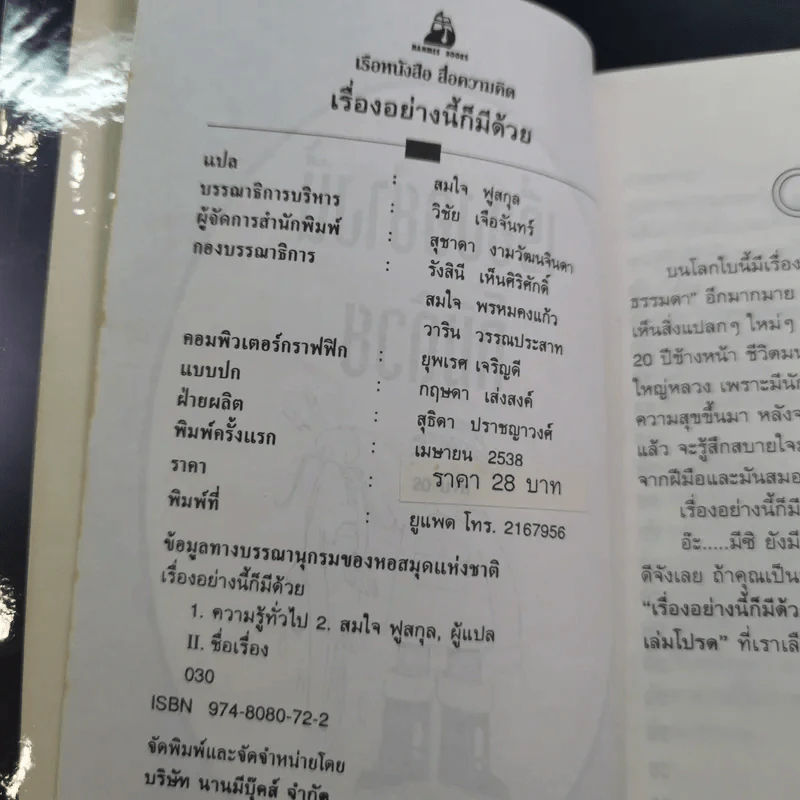 NANMEE BOOKS
เรือหนังสือ สื่อความคิด
เรื่องอย่างนี้ก็มีด้วย
แปล : สมใจ ฟูสกุล
บรรณาธิการบริหาร : วิชัย เจือจันทร์
ผู้จัดการสำนักพิมพ์ : สุชาดา งามวัฒนจินดา
กองบรรณาธิการ : รังสินี เห็นศิริศักดิ์
สมใจ พรหมคงแก้ว
วาริน วรรณประสาท
คอมพิวเตอร์กราฟฟิก : ยุพเรศ เจริญดี
แบบปก : กฤษดา เส่งสงค์
ฝ่ายผลิต : สุธิดา ปราชญาวงศ์
พิมพ์ครั้งแรก : เมษายน 2538
ราคา : ราคา 28 บาท
พิมพ์ที่ : ยูแพด โทร. 2167956
ข้อมูลทางบรรณานุกรมของหอสมุดแห่งชาติ
เรื่องอย่างนี้ก็มีด้วย
1. ความรู้ทั่วไป 2. สมใจ ฟูสกุล, ผู้แปล
II. ชื่อเรื่อง
030
ISBN 974-8080-72-2
จัดพิมพ์และจัดจำหน่ายโดย
บริษัท นานมีบุ๊คส์ จำกัด
บนโลกใบนี้มีเรื่อง
ธรรมดา" อีกมากมาย
เห็นสิ่งแปลกๆ ใหม่ๆ
20 ปีข้างหน้า ชีวิตมน
ใหญ่หลวง เพราะมีนัก
ความสุขขึ้นมา หลังจ
แล้ว จะรู้สึกสบายใจ
จากฝีมือและมันสมอ
เรื่องอย่างนี้ก็มี
อ๊ะ.....มีซิ ยังมี
ดีจังเลย ถ้าคุณเป็น
"เรื่องอย่างนี้ก็มีด้ว
เล่มโปรด" ที่เราเลือ